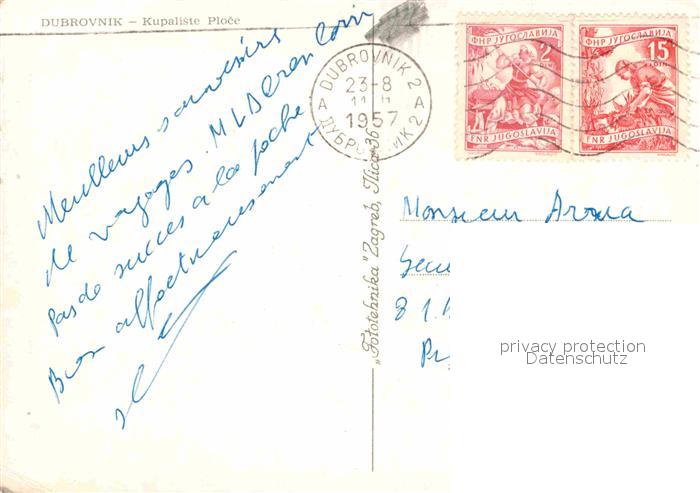 DUBROVNIK – Kupalište Ploče
Meilleurs souvenirs
de voyages.
Pas de succès a la poche
Bien affectueusement
DUBROVNIK 2
A 23-8 A
11 H
1957
ДУБРОВНИК 2
ФНР ЈУГОСЛАВИЈА
2
DIN
FNR JUGOSLAVIJA
ФНР ЈУГОСЛАВИЈА
15
DIN
FNR JUGOSLAVIJA
„Fototehnika" Zagreb, Ilica 36
Monsieur
privacy protection
Datenschutz